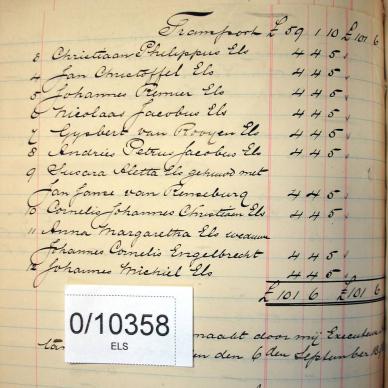 Transport £59 1 10 £101 6
3 Christiaan Philippus Els 4 4 5
4 Jan Christoffel Els 4 4 5
5 Johannes Renier Els 4 4 5
6 Nicolaas Jacobus Els 4 4 5
7 Gysbert van Rooyen Els 4 4 5
8 Andries Petrus Jacobus Els 4 4 5
9 Susara Aletta Els gehuwd met
Jan Janse van Rensburg 4 4 5
10 Cornelis Johannes Christiaan Els 4 4 5
11 Anna Margaretha Els weduwe
Johannes Cornelis Engelbrecht 4 4 5
12 Johannes Michiel Els 4 4 5
£101 6 £101 6
0/10358
ELS
maakt door mij Executeur
en den 6 den September